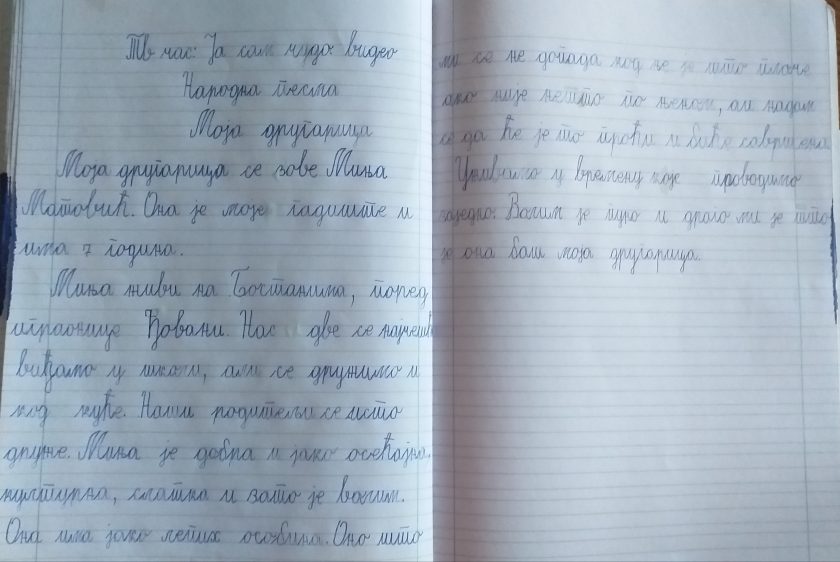 ТВ час: Ја сам чудо видео
Народна песма
Моја другарица
Моја другарица се зове Миња
Матовић. Она је моје годиште и
има 7 година.
Миња живи на Бостанима, поред
играонице Ђовани. Нас две се најчешће
виђамо у школи, али се дружимо и
код куће. Наши родитељи се исто
друже. Миња је добра и јако осећајна.
културна, слатка и зато је волим.
Она има јако лепих особина. Оно што
ми се не допада код ње је што плаче
ако није нешто по њеном, али надам
се да ће је то проћи и биће савршена
Уживамо у времену које проводимо
заједно. Волим је пуно и драго ми је што
је она баш моја другарица.